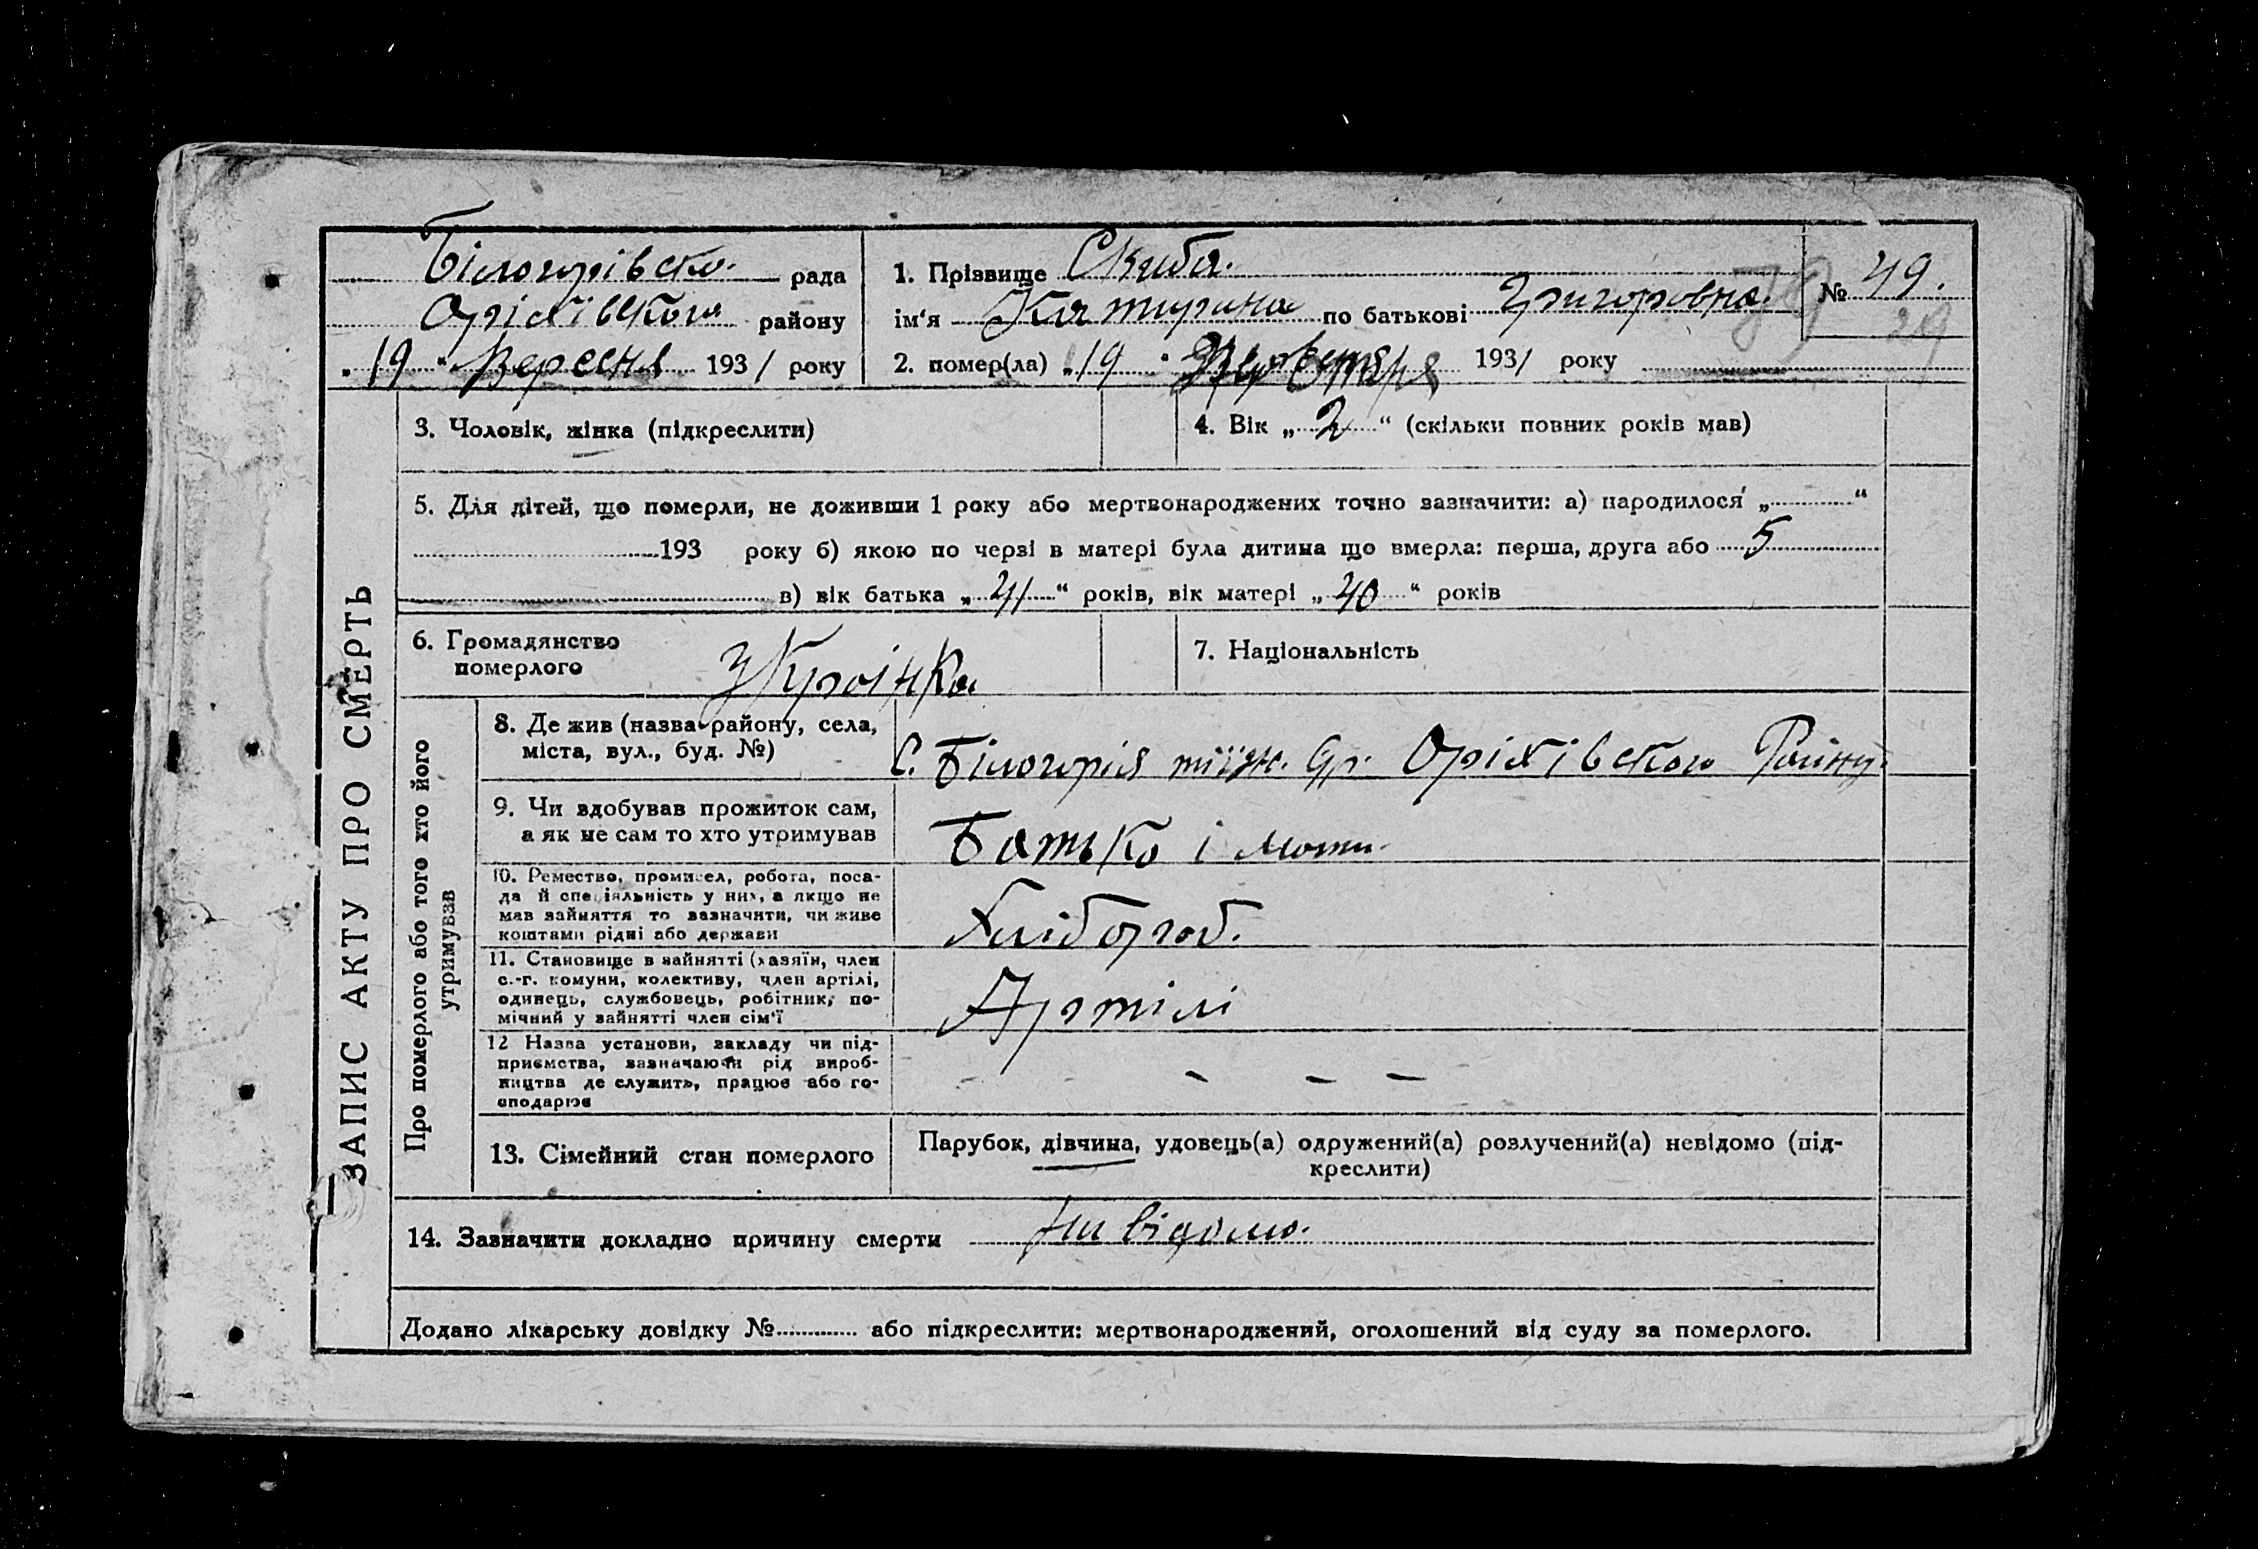 Білогорівсько. рада
Оріхівського району
„19“ Вересня 1931 року
1. Прізвище Скиба.
ім‘я Катирина по батькові Григоровна.
2. помер(ла) „19“ 1931 року
№ 49.
39
ЗАПИС АКТУ ПРО СМЕРТЬ
3. Чоловік, жінка (підкреслити)
4. Вік „2“ (скільки повних років мав)
5. Для дітей, що померли, не доживши 1 року або мертвонароджених точно зазначити: а) народилося „ “
193 року б) якою по черзі в матері була дитина що вмерла: перша, друга або 5
в) вік батька „41“ років, вік матері „40“ років
6. Громадянство
померлого
7. Національність
Про померлого або того хто його
утримував
8. Де жив (назва району, села,
міста, вул., буд. №)
С. Білогорія Оріхівского Району
9. Чи здобував прожиток сам,
а як не сам то хто утримував
Батько і мати.
10. Ремество, промисел, робота, поса-
да й спеціяльність у них, а якщо не
мав зайняття то зазначити, чи живе
коштами рідні або держави
Хлібороб.
11. Становище в зайнятті (хазяїн, член
с.-г. комуни, колективу, член артілі,
одинець, службовець, робітник, по-
мічний у зайнятті член сім‘ї
Артілі
12 Назва установи, закладу чи під-
приємства, зазначаючи рід вироб-
ництва де служить, працює або го-
сподарює
– – – –
13. Сімейний стан померлого
Парубок, дівчина, удовець(а) одружений(а) розлучений(а) невідомо (під-
креслити)
14. Зазначити докладно причину смерти Ни відомо.
Додано лікарську довідку № або підкреслити: мертвонароджений, оголошений від суду за померлого.